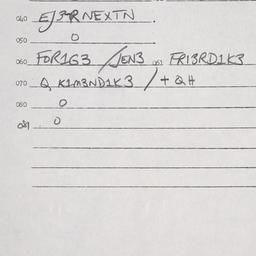 040 EJ3RNEXTN .
050 0
060 FOR1G3 / JEN3 061 FRI3RD1K3
070 Q K1M3ND1K3 / + QH
080 0
081 0